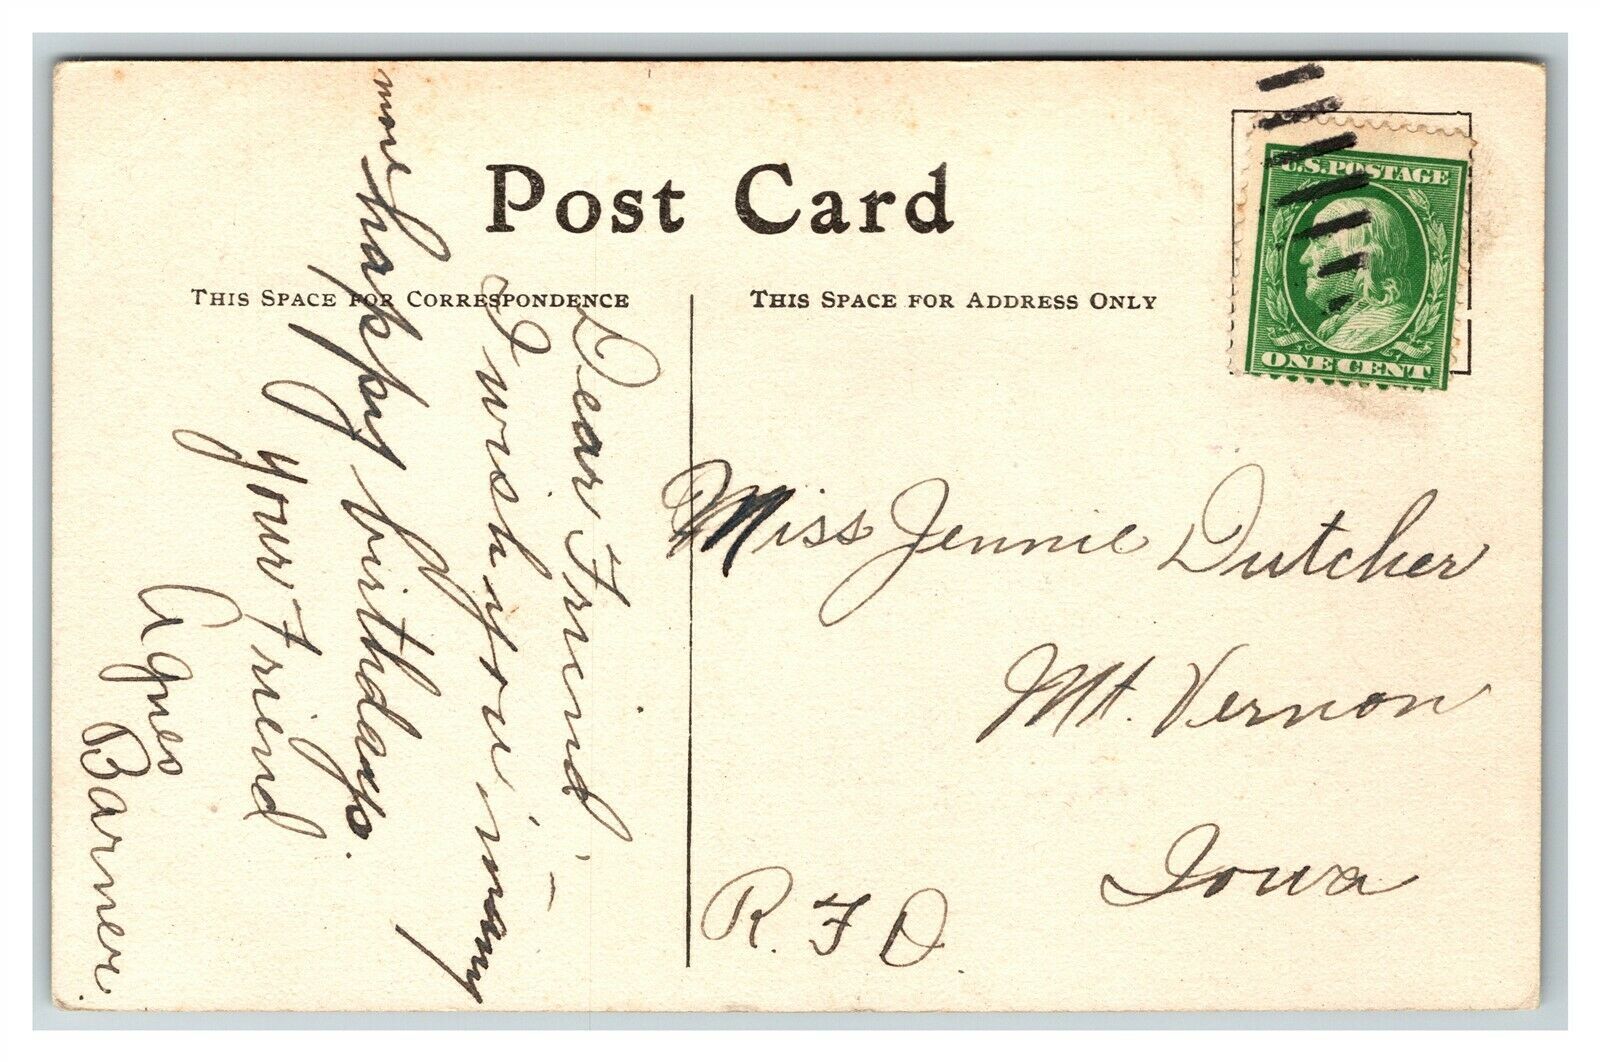 Post Card
THIS SPACE FOR CORRESPONDENCE
THIS SPACE FOR ADDRESS ONLY
U.S. POSTAGE
ONE CENT
Dear Friend,—
I wish you many
more happy birthdays.
your Friend
Agnes Barner.
Miss Jennie Dutcher
Mt. Vernon
Iowa
R. F D.